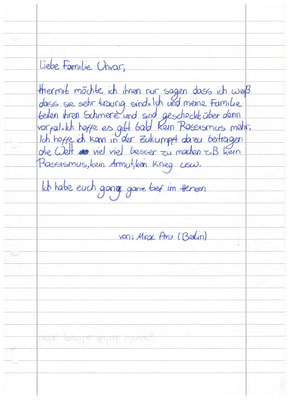 Liebe Familie Unvar,
Hiermit möchte ich ihnen nur sagen dass ich weiß
dass sie sehr traurig sind. Ich und meine Familie
teilen ihren Schmerz und sind geschockt über denn
vorfal. Ich hoffe es gibt bald kein Rassismus mehr.
Ich hoffe ich kann in der Zukumpft dazu beitragen
die Welt viel viel besser zu machen z.B kein
Rassismus, kein Armut, kein Krieg usw.
Ich habe euch ganz ganz tief im Herzen
von: Mirac (Berlin)